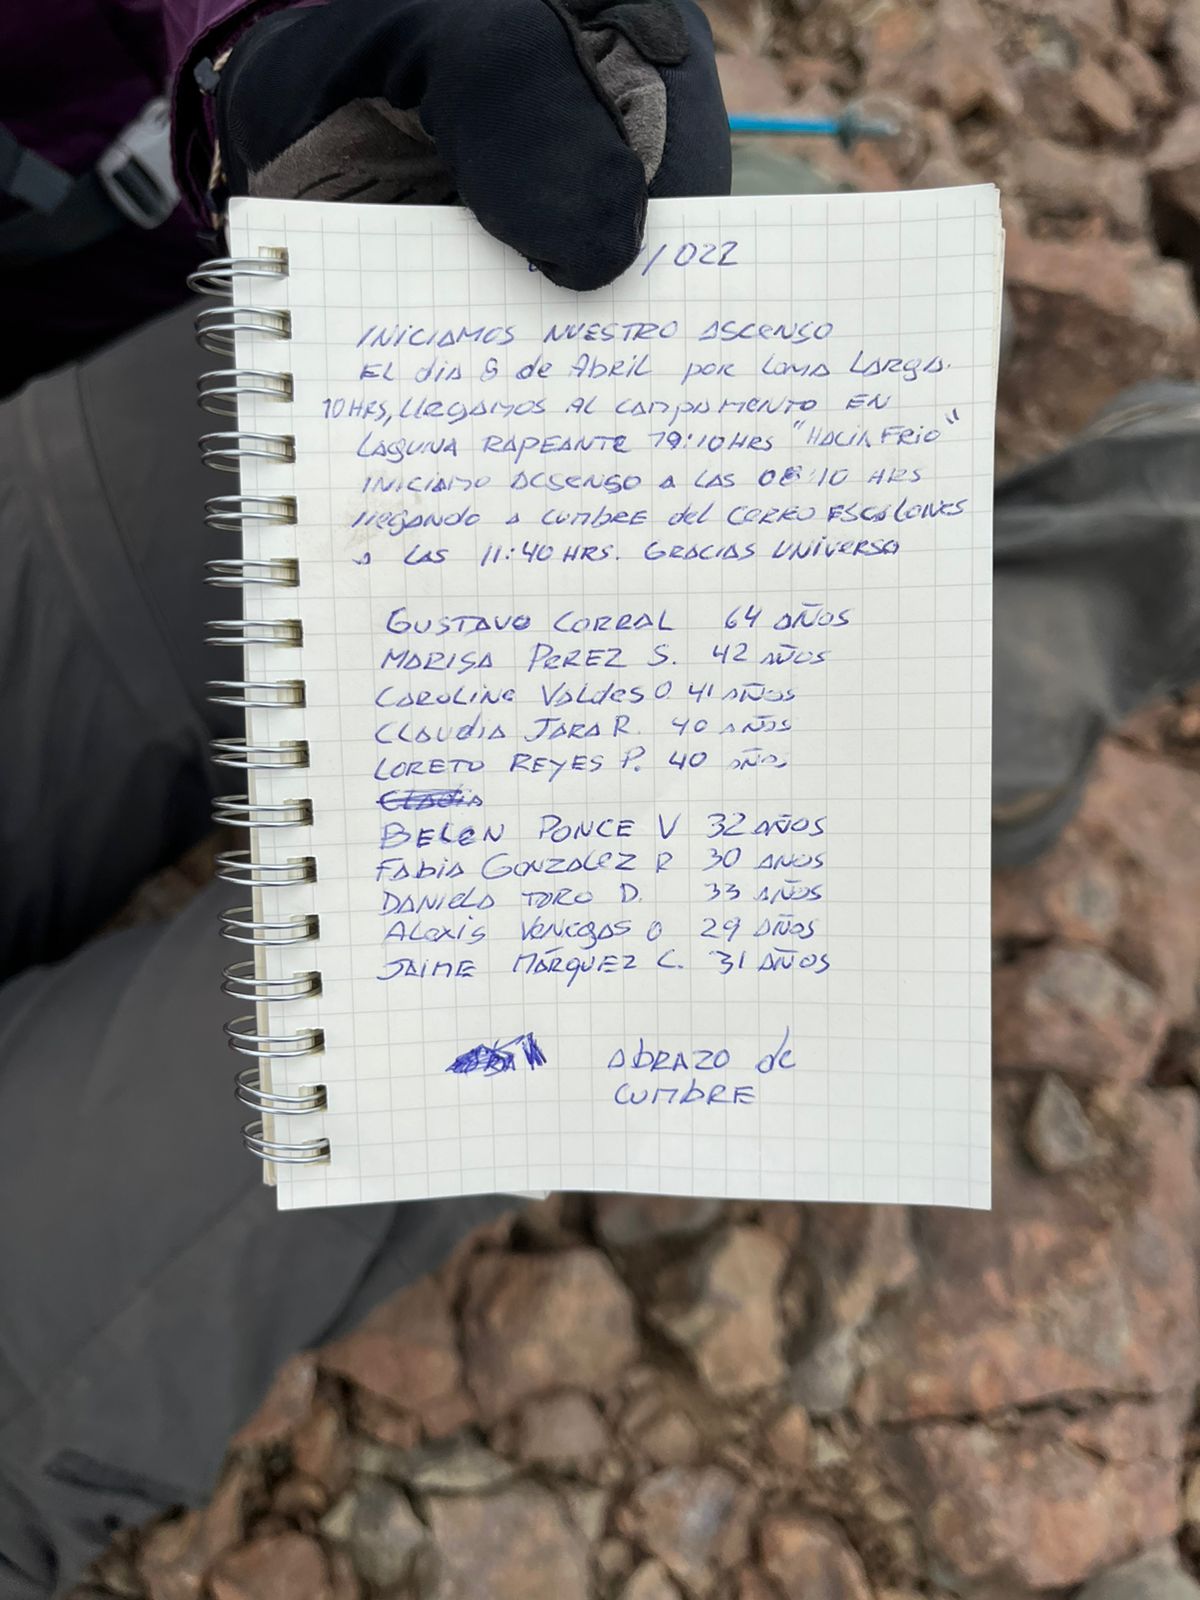 /022
INICIAMOS NUESTRO ASCENSO
EL dia 8 de Abril por Loma Larga.
10 HRS, LLEGAMOS AL CAMPAMENTO EN
LAGUNA RAPEANTE 19:10 HRS "HACIA FRIO"
INICIAMO ASCENSO A LAS 08:10 HRS
llegando A CUMBRE del CERRO ESCALONES
A LAS 11:40 HRS. GRACIAS UNIVERSO
GUSTAVO CORRAL 64 AÑOS
MARISA PEREZ S. 42 AÑOS
CAROLINA VALdES O 41 AÑOS
CLAUdIA JARA R. 40 AÑOS
LORETO REYES P. 40 AÑOS
BELEN PONCE V 32 AÑOS
FABIA GONZALEZ R 30 ANOS
DANIELA TORO D. 33 AÑOS
ALEXIS VENEGAS O 29 AÑOS
JAIME MÁRQUEZ C. 31 AÑOS
AbRAZO de
CUMbRE